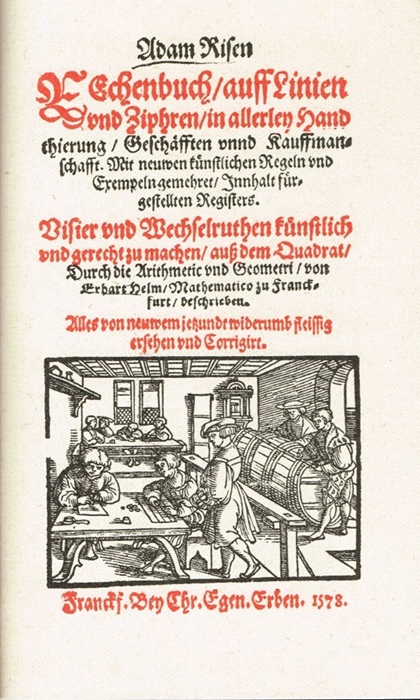 Adam Risen
REchenbuch / auff Linien
vnd Ziphren / in allerley Hand
thierung / Geschäfften vnnd Kauffman⸗
schafft. Mit neuwen künstlichen Regeln vnd
Exempeln gemehret / Innhalt für⸗
gestellten Registers.
Visier vnd Wechselruthen künstlich
vnd gerecht zu machen / auß dem Quadrat /
Durch die Arithmetic vnd Geometri / von
Erhart Helm / Mathematico zu Franck⸗
furt / beschrieben.
Alles von neuwem jetzundt widerumb fleissig
ersehen vnd Corrigirt.
Franckf. Bey Chr. Egen. Erben. 1578.